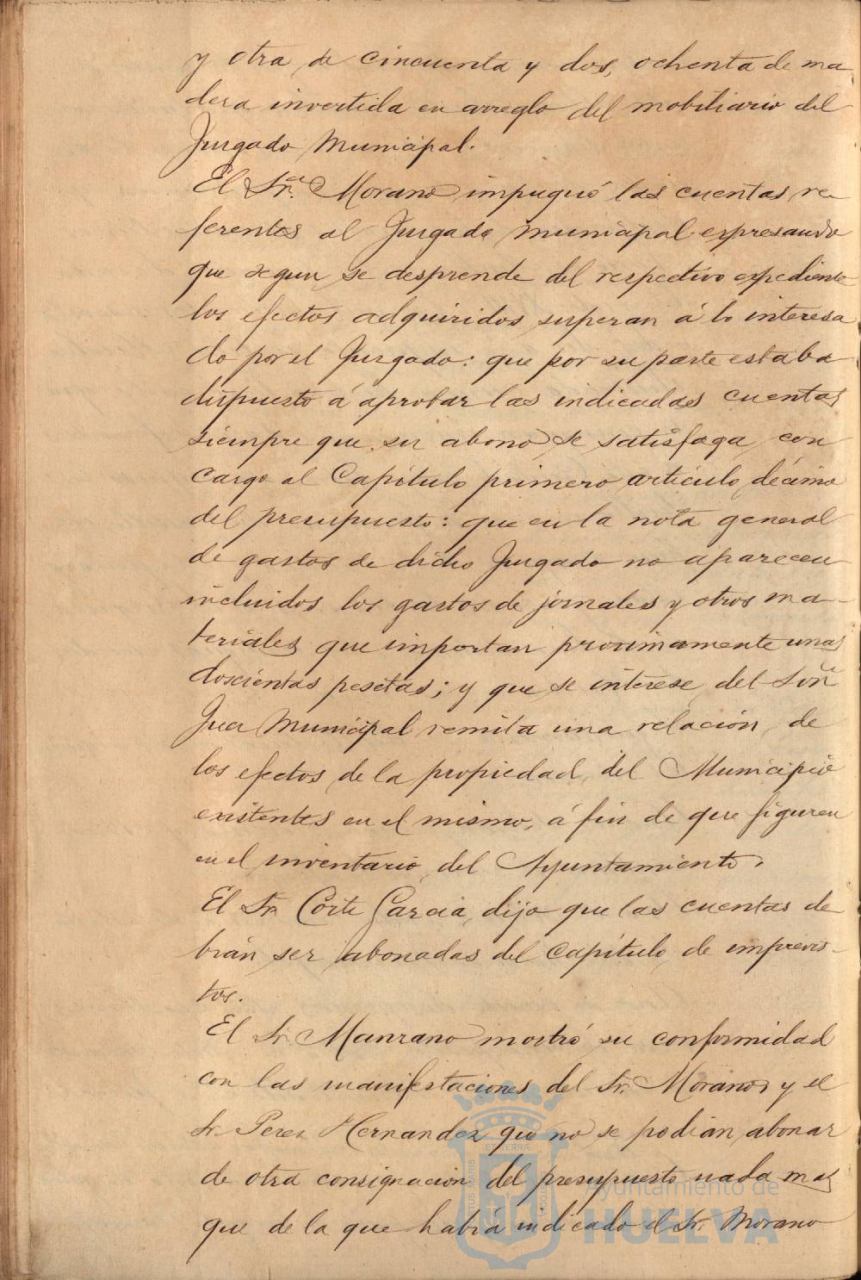 y otra de cincuenta y dos, ochenta de ma
dera invertida en arreglo del mobiliario del
Juzgado Municipal.
El Sr. Morano impugnó las cuentas re
ferentes al Juzgado municipal expresando
que segun se desprende del respectivo expediente
los efectos adquiridos superan á lo interesa
do por el Juzgado: que por su parte estaba
dispuesto á aprobar las indicadas cuentas
siempre que su abono se satisfaga con
cargo al Capítulo primero artículo décimo
del presupuesto: que en la nota general
de gastos de dicho Juzgado no aparecen
incluidos los gastos de jornales y otros ma-
teriales que importan proximamente unas
doscientas pesetas; y que se interese del Señr
Juez Municipal remita una relación de
los efectos de la propiedad del Municipio
existentes en el mismo, á fin de que figuren
en el inventario del Ayuntamiento.
El Sr. Corte Garcia dijo que las cuentas de
brán ser abonadas del capítulo de imprevis-
tos.
El Sr. Manzano mostró su conformidad
con las manifestaciones del Sr. Morano y el
Sr. Perez Hernandez que no se podian abonar
de otra consignación del presupuesto nada mas
que de la que habrá indicado el Sr. Morano
Ayuntamiento de
HUELVA